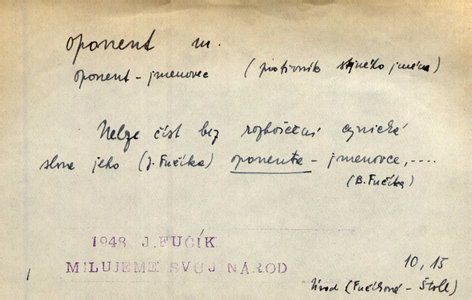 oponent m.
oponent – jmenovec (protivník stejného jména)
Nelze číst bez rozhořčení cynická
slova jeho (J. Fučíka) oponenta – jmenovce, ....
(B. Fučíka)
1948 J.FUČÍK
MILUJEME SVŮJ NÁROD
10, 15
Úvod (Fučíková – Štoll)